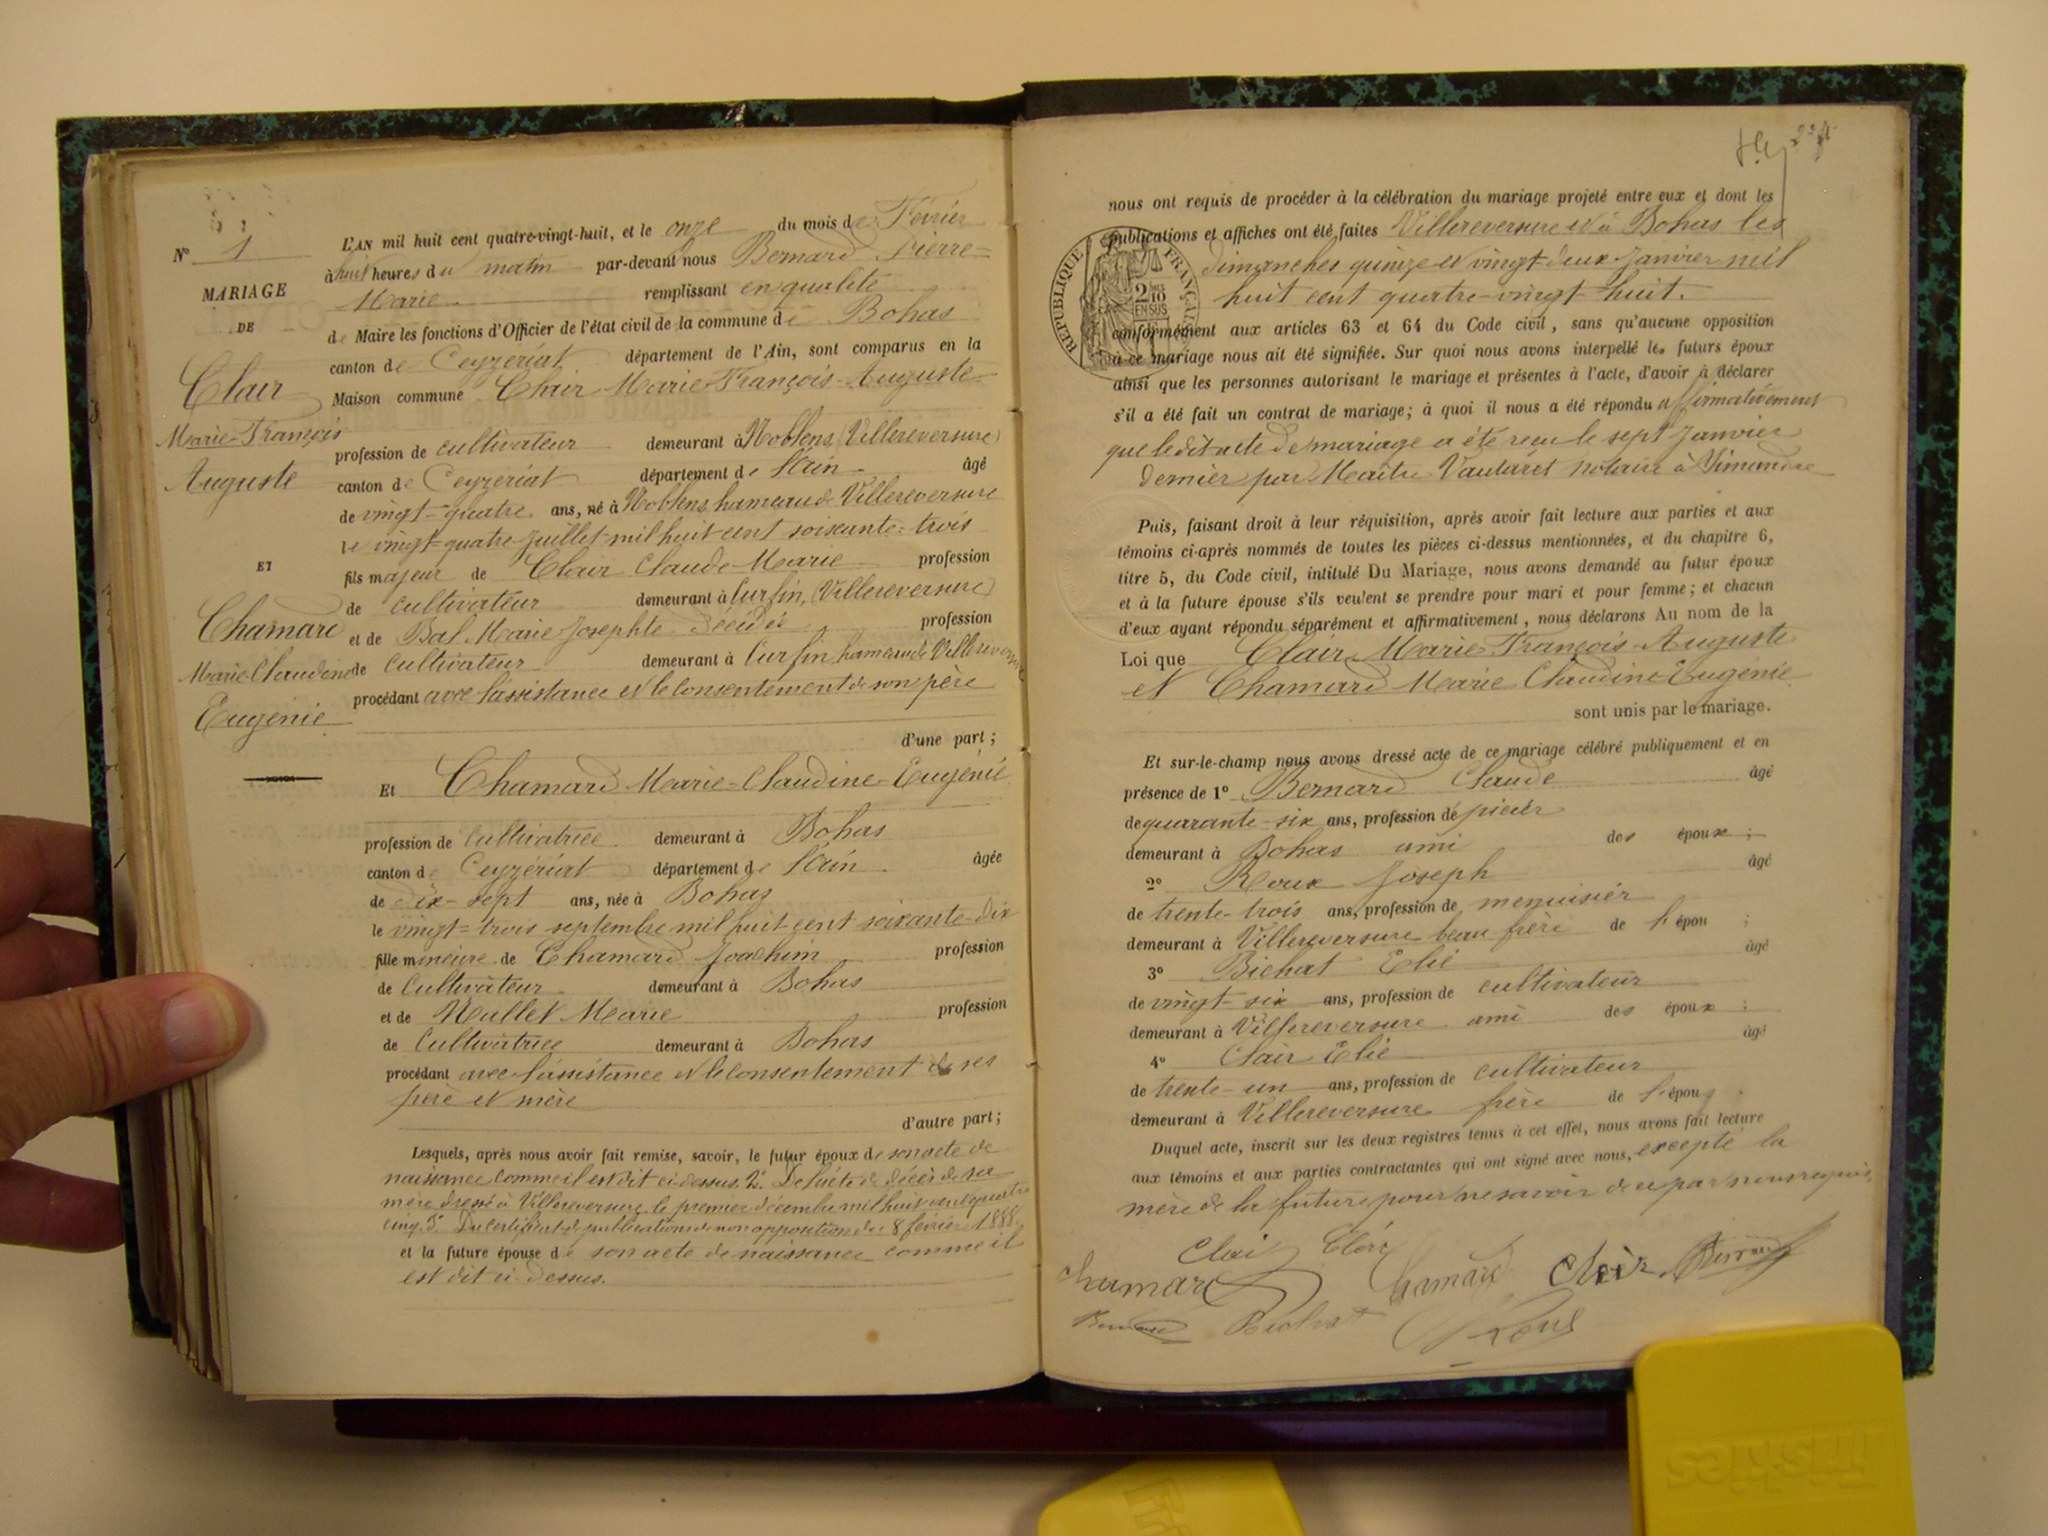 N° 1
MARIAGE
DE
Clair
Marie-François
Auguste
ET
Chamard
Marie Claudine
Eugénie
L'AN mil huit cent quatre-vingt-huit, et le onze du mois de Février
à huit heures du matin par-devant nous Bernard Pierre-
Marie remplissant en qualité
de Maire les fonctions d'Officier de l'état civil de la commune de Bohas
canton de Ceyzériat département de l'Ain, sont comparus en la
Maison commune Clair Marie-François-Auguste
profession de cultivateur demeurant à Noblens (Villereversure)
canton de Ceyzériat département de l'Ain âgé
de vingt-quatre ans, né à Noblens hameau de Villereversure
le vingt-quatre Juillet mil huit cent soixante-trois
fils majeur de Clair Claude-Marie profession
de cultivateur demeurant à Curfin, (Villereversure)
et de Bal Marie Josephte décédée profession
de cultivateur demeurant à Curfin hameau de Villereversure
procédant avec l'assistance et le consentement de son père
d'une part ;
Et Chamard Marie-Claudine-Eugénie
profession de Cultivatrice demeurant à Bohas
canton de Ceyzériat département de l'Ain âgée
de dix-sept ans, née à Bohas
le vingt-trois septembre mil huit cent soixante-dix
fille mineure de Chamard Joachim profession
de Cultivateur demeurant à Bohas
et de Nallet Marie profession
de Cultivatrice demeurant à Bohas
procédant avec l'assistance et le consentement de ses
père et mère
d'autre part ;
Lesquels, après nous avoir fait remise, savoir, le futur époux de son acte de
naissance comme il est dit ci-dessus. 2° De l'acte de décès de sa
mère dressé à Villereversure le premier décembre mil huit cent quatre
cinq. 3° Du certificat de publications de non opposition du 8 février 1888
et la future épouse de son acte de naissance comme il
est dit ci-dessus.
nous ont requis de procéder à la célébration du mariage projeté entre eux et dont les
publications et affiches ont été faites Villereversure et à Bohas les
dimanches quinze et vingt-deux Janvier mil
huit cent quatre-vingt-huit.
RÉPUBLIQUE FRANÇAISE
2/10 EN SUS
conformément aux articles 63 et 64 du Code civil, sans qu'aucune opposition
à ce mariage nous ait été signifiée. Sur quoi nous avons interpellé les futurs époux
ainsi que les personnes autorisant le mariage et présentes à l'acte, d'avoir à déclarer
s'il a été fait un contrat de mariage ; à quoi il nous a été répondu affirmativement
que ledit acte de mariage a été reçu le sept Janvier
dernier par Maître Vautaret notaire à Simandre
Puis, faisant droit à leur réquisition, après avoir fait lecture aux parties et aux
témoins ci-après nommés de toutes les pièces ci-dessus mentionnées, et du chapitre 6,
titre 5, du Code civil, intitulé Du Mariage, nous avons demandé au futur époux
et à la future épouse s'ils veulent se prendre pour mari et pour femme ; et chacun
d'eux ayant répondu séparément et affirmativement, nous déclarons Au nom de la
Loi que Clair Marie François-Auguste
et Chamard Marie Claudine Eugénie
sont unis par le mariage.
Et sur-le-champ nous avons dressé acte de ce mariage célébré publiquement et en
présence de 1° Bernard Claude âgé
de quarante-six ans, profession de
demeurant à Bohas ami des époux ;
2° Roux Joseph âgé
de trente-trois ans, profession de menuisier
demeurant à Villereversure beau frère de l'épou ;
3° Bichat Elie âgé
de vingt-six ans, profession de cultivateur
demeurant à Villereversure ami des époux ;
4° Clair Elie âgé
de trente-un ans, profession de cultivateur
demeurant à Villereversure frère de l'épou
Duquel acte, inscrit sur les deux registres tenus à cet effet, nous avons fait lecture
aux témoins et aux parties contractantes qui ont signé avec nous, excepté la
mère de la future pour ne savoir de ce par nous requise
Clair Chamard Clair Bernard
Chamard
Bernard Bichat Roux